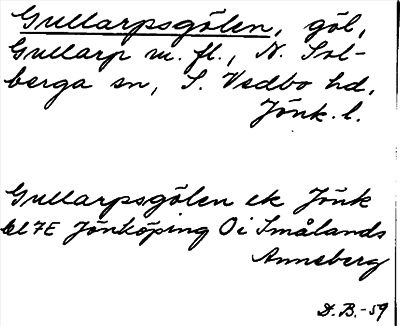 Gullarpsgölen, göl,
Gullarp m. fl., N. Sol-
berga sn, S. Vedbo hd,
Jönk. l.
Gullarpsgölen ek Jönk
bl 7E Jönköping O i Smålands
Anneberg
D.B.-59